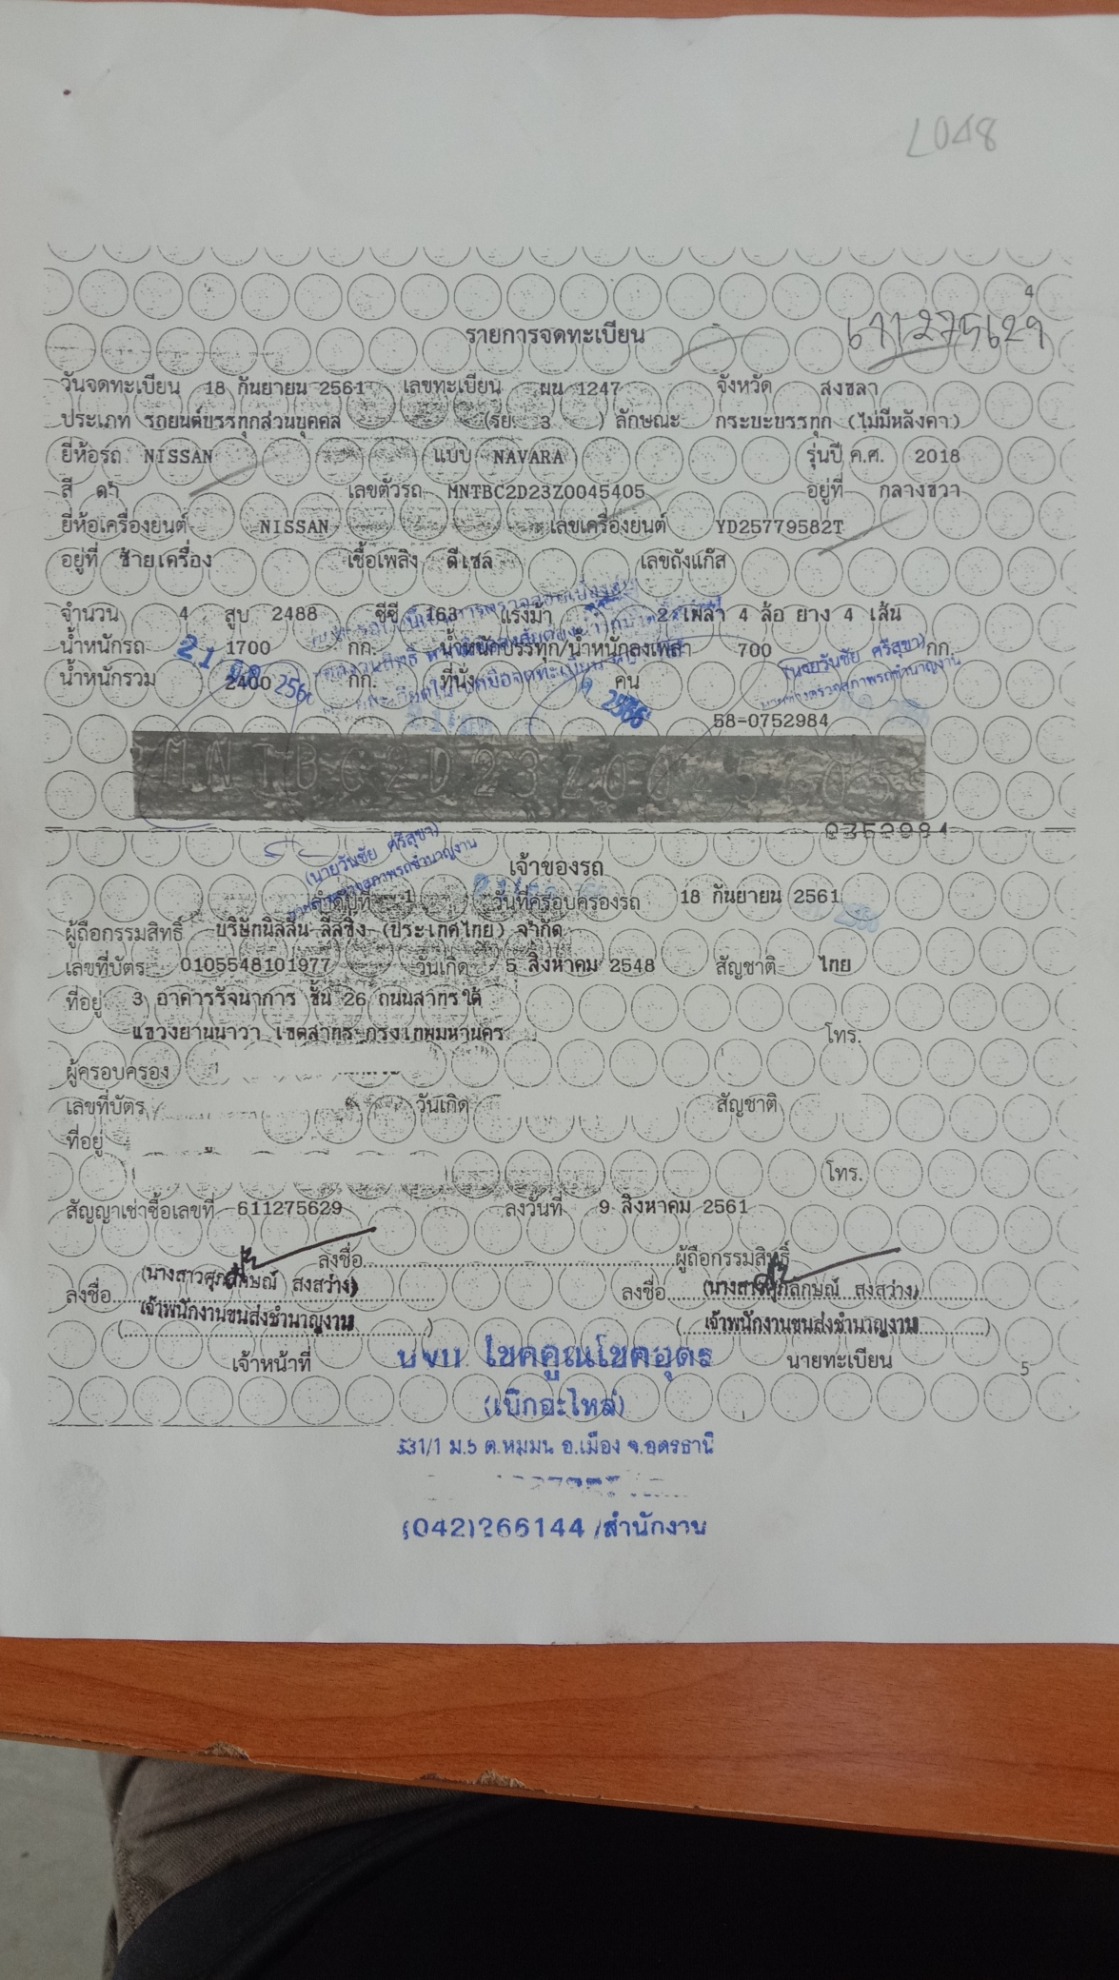 L048
4
รายการจดทะเบียน 611275629
วันจดทะเบียน 18 กันยายน 2561 เลขทะเบียน ผน 1247 จังหวัด สงขลา
ประเภท รถยนต์บรรทุกส่วนบุคคล (รย. 3 ) ลักษณะ กระบะบรรทุก (ไม่มีหลังคา)
ยี่ห้อรถ NISSAN แบบ NAVARA รุ่นปี ค.ศ. 2018
สี ดำ เลขตัวรถ MNTBC2D23Z0045405 อยู่ที่ กลางขวา
ยี่ห้อเครื่องยนต์ NISSAN เลขเครื่องยนต์ YD25779582T
อยู่ที่ ซ้ายเครื่อง เชื้อเพลิง ดีเซล เลขถังแก๊ส
จำนวน 4 สูบ 2488 ซีซี 163 แรงม้า 2 เพลา 4 ล้อ ยาง 4 เส้น
น้ำหนักรถ 1700 กก. น้ำหนักบรรทุก/น้ำหนักลงเพลา 700 กก.
น้ำหนักรวม 2400 กก. ที่นั่ง คน
(นายวันชัย ศรีสุขา)
นายช่างตรวจสภาพรถชำนาญงาน
58-0752984
MNTBC2D23Z00
(นายวันชัย ศรีสุขา)
นายช่างตรวจสภาพรถชำนาญงาน
เจ้าของรถ
ลำดับที่ 1 วันที่ครอบครองรถ 18 กันยายน 2561
ผู้ถือกรรมสิทธิ์ บริษัทนิสสัน ลีสซิ่ง (ประเทศไทย) จำกัด
เลขที่บัตร 0105548101977 วันเกิด 5 สิงหาคม 2548 สัญชาติ ไทย
ที่อยู่ 3 อาคารรัจนาการ ชั้น 26 ถนนสาทรใต้
แขวงยานนาวา เขตสาทร กรุงเทพมหานคร โทร.
ผู้ครอบครอง
เลขที่บัตร วันเกิด สัญชาติ
ที่อยู่
โทร.
สัญญาเช่าซื้อเลขที่ 611275629 ลงวันที่ 9 สิงหาคม 2561
ลงชื่อ ผู้ถือกรรมสิทธิ์
ลงชื่อ (นางสาวศุภลักษณ์ สงสว่าง) ลงชื่อ (นางสาวศุภลักษณ์ สงสว่าง)
(เจ้าพนักงานขนส่งชำนาญงาน) (เจ้าพนักงานขนส่งชำนาญงาน)
เจ้าหน้าที่ นายทะเบียน
5
โชคคูณโชคอุดร
(เบิกอะไหล่)
331/1 ม.5 ต.หมูม่น อ.เมือง จ.อุดรธานี
(042)266144 /สำนักงาน